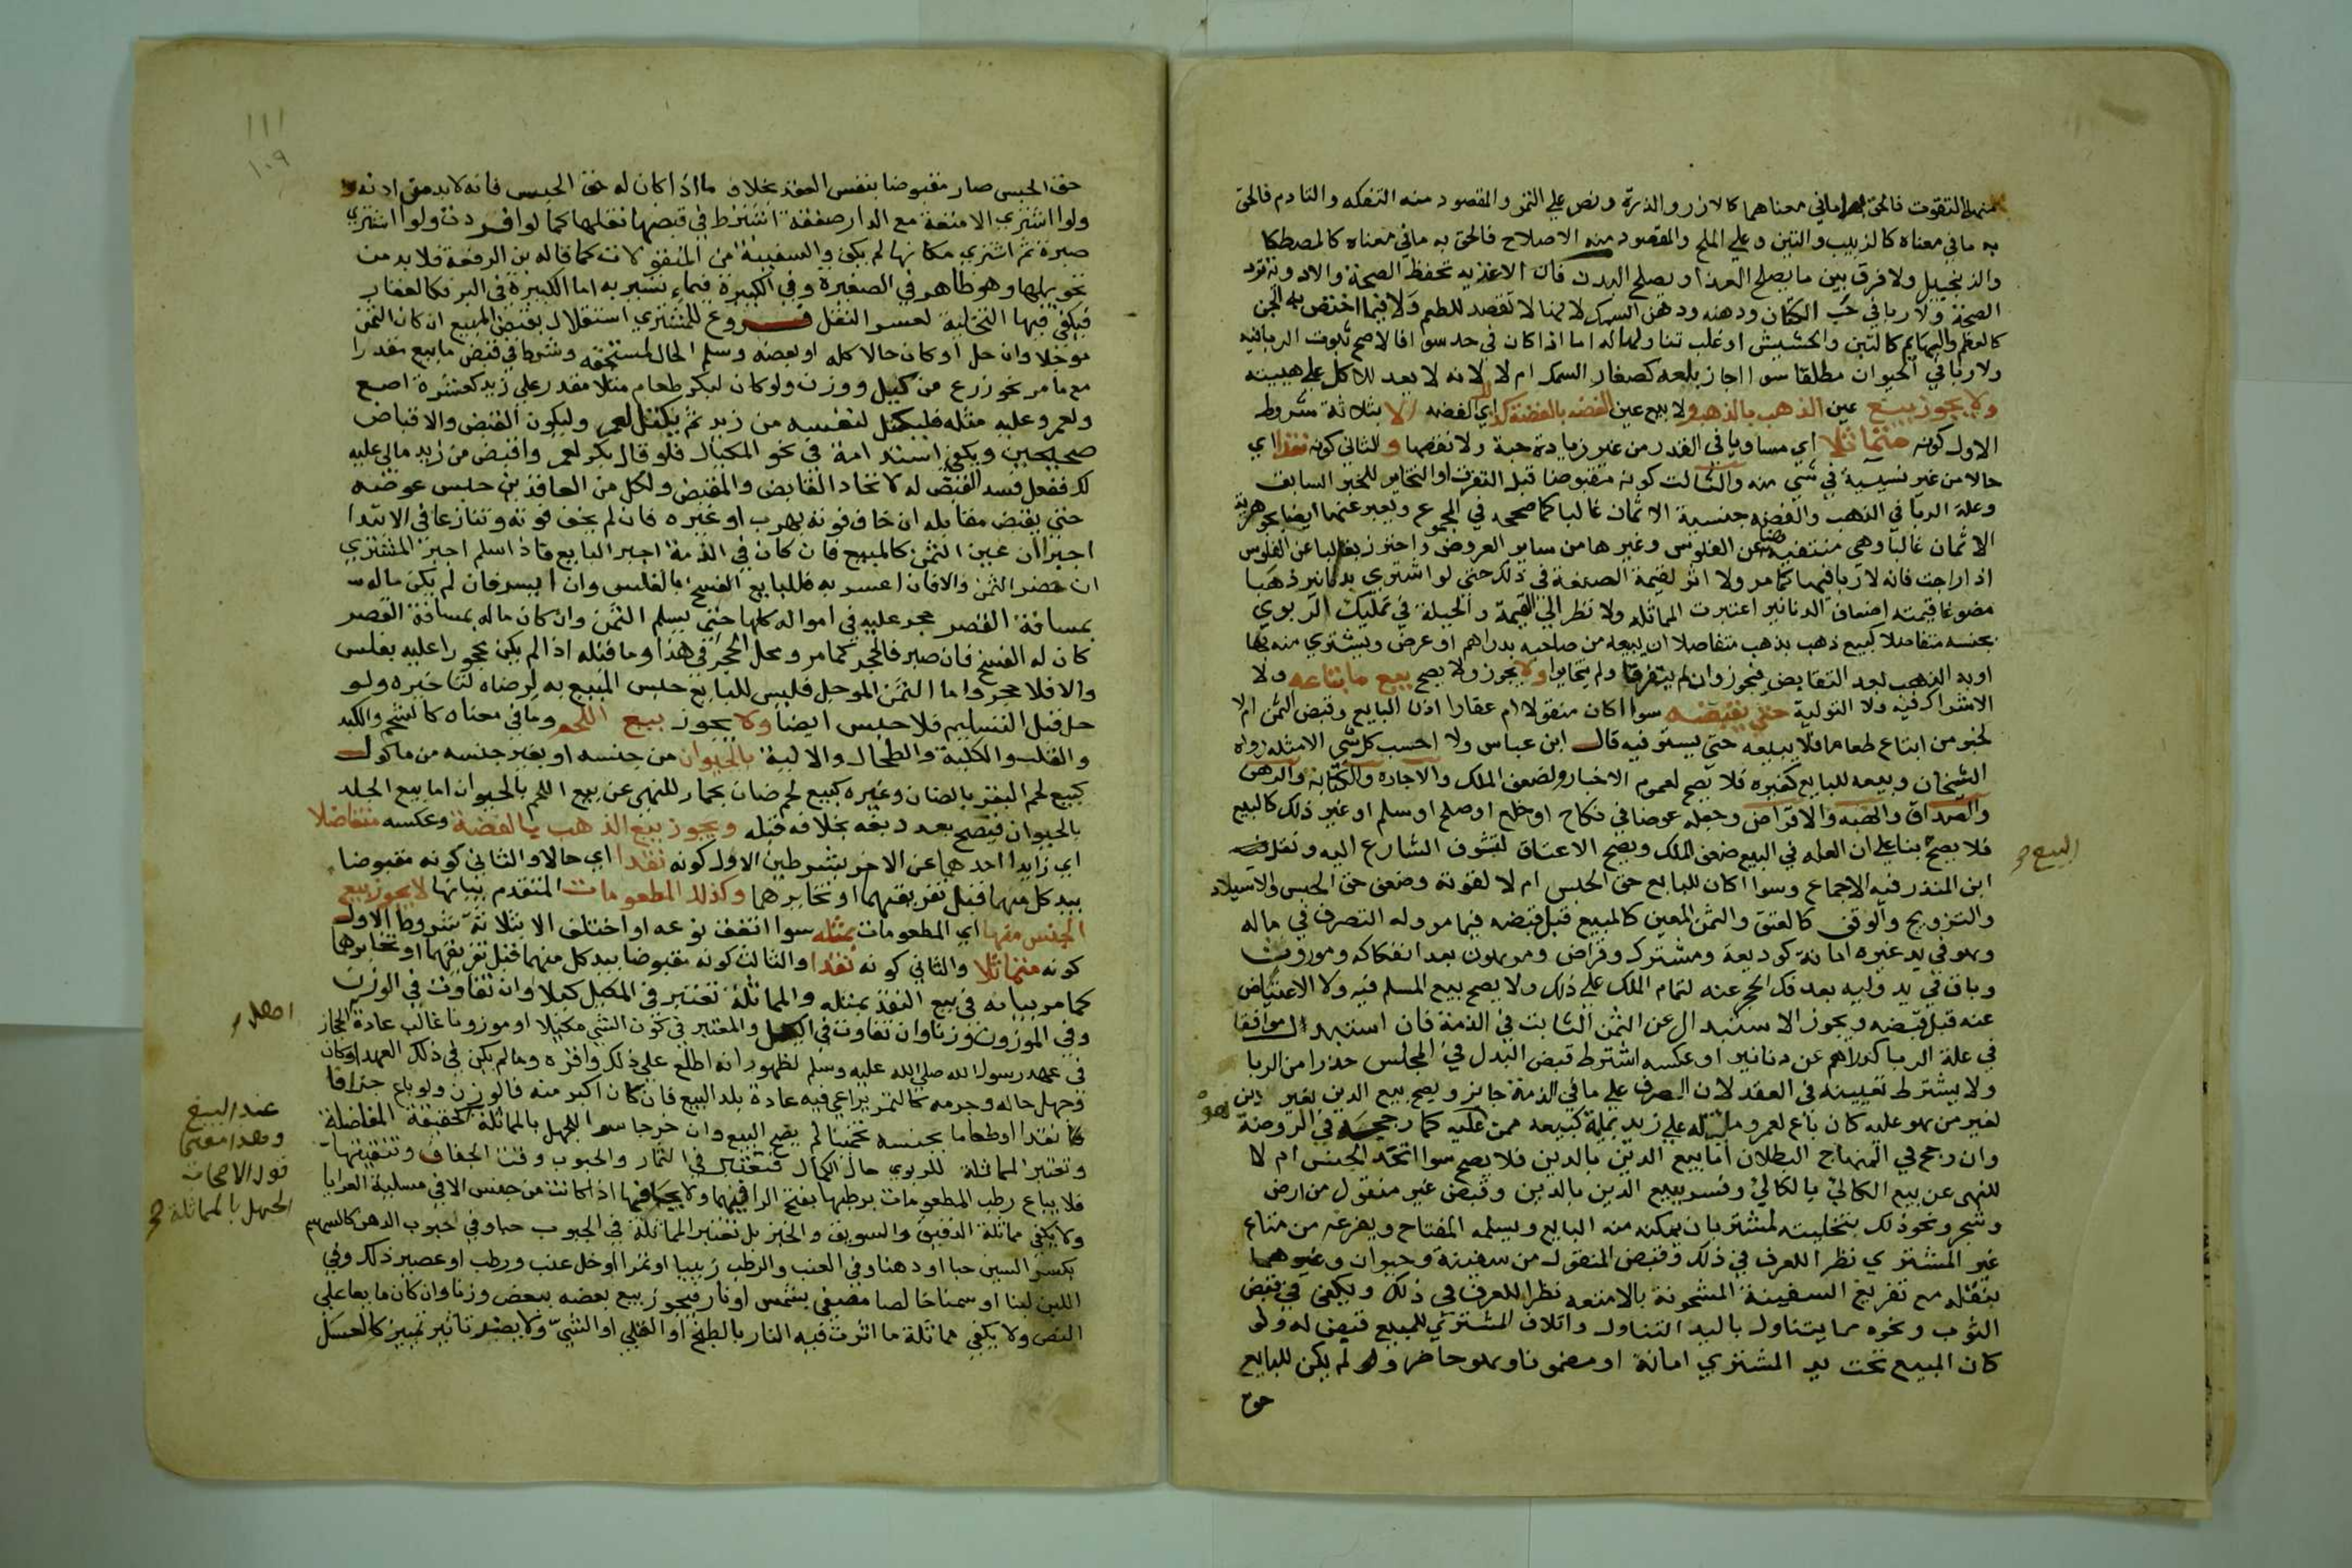 منهما التقوت فالحق بهما ما في معناهما كالارز والذرة ونص على التمر والمقصود منه التفكه والتادم فالحق
به ما في معناه كالزبيب والتين وعلى الملح والمقصود منه الاصلاح فالحق به ما في معناه كالمصطكا
والزنجبيل ولا فرق بين ما يصلح الغذا او يصلح البدن فان الاغذيه تحفظ الصحة والادوية ترد
الصحة ولا ربا في حب الكتان ودهنه ودهن السمك لانها لا تقصد للطعم ولا فيما اختص به الجن
كالعظم والبهايم كالتبن والحشيش او غلب تناولها له اما اذا كان في حد سوا فالاصح ثبوت الربا فيه
ولا ربا في الحيوان مطلقا سوا اجاز بلعه كصغار السمك ام لا لانه لا يعد للاكل على هيئته
ولا يجوز بيع عين الذهب بالذهب ولا بيع عين الفضه بالفضة كذلك اي الفضه الا بثلاثة شروط
الاول كونه متماثلا اي مساويا في القدر من غير زيادة حبة ولا نقصها والثاني كونه نقدا اي
حالا من غير نسيية في شي منه والثالث كونه مقبوضا قبل التفرق او التخاير للخبر السابق
وعلة الربا في الذهب والفضه جنسية الاثمان غالبا كما صححه في المجموع ويعبر عنها ايضا بجوهرية
الاثمان غالبا وهي منتفية عن الفلوس وغيرها من ساير العروض واحترز بغالبا عن الفلوس
اذا راجت فانه لا ربا فيها كما مر ولا اثر لقيمة الصنعة في ذلك حتى لو اشترى بدنانير ذهبا
مصوغا قيمته اضعاف الدنانير اعتبرت المماثله ولا نظر الى القيمة والحيلة في تمليك الربوي
بجنسه متفاضلا كبيع ذهب بذهب متفاضلا ان يبيعه من صاحبه بدراهم او عرض ويشتري منه بها
او به الذهب بعد التقابض فيجوز وان لم يتفرقا ولم يتخايرا ولا يجوز ولا يصح بيع ما ابتاعه ولا
الاشتراك فيه ولا التولية حتى يقبضه سوا اكان منقولا ام عقارا اذن البايع وقبض الثمن ام لا
لخبر من ابتاع طعاما فلا يبيعه حتى يستوفيه قال ابن عباس ولا احسب كل شي الا مثله رواه
الشيخان وبيعه للبايع كغيره فلا يصح لعموم الاخبار ولضعف الملك والاجارة والكتابة والرهن
والصداق والهبه والاقراض وجعله عوضا في نكاح او خلع او صلح او سلم او غير ذلك كالبيع
فلا يصح بنا على ان العله في البيع ضعف الملك ويصح الاعتاق لتشوف الشارع اليه ونقل
البيع
ابن المنذر فيه الاجماع وسوا اكان للبايع حق الحبس ام لا لقوته وضعف حق الحبس والاستيلاد
والتزويج والوقف كالعتق والثمن المعين كالمبيع قبل قبضه فيما مر وله التصرف في ماله
وهو في يد غيره امانة كوديعة ومشترك وقراض ومرهون بعد انفكاكه وموروث
وباق في يد وليه بعد فك الحجر عنه لتمام الملك على ذلك ولا يصح بيع المسلم فيه ولا الاعتياض
عنه قبل قبضه ويجوز الاستبدال عن الثمن الثابت في الذمة فان استبدل موافقا
في علة الربا كدراهم عن دنانير او عكسه اشترط قبض البدل في المجلس حذرا من الربا
ولا يشترط تعيينه في العقد لان الصرف على ما في الذمة جايز ويصح بيع الدين بغير دين
لغير من هو عليه كان باع لعمرو ماية له على زيد بماية كبيعه ممن عليه كما رجحه في الروضة
وان رجح في المنهاج البطلان اما بيع الدين بالدين فلا يصح سوا اتحد الجنس ام لا
للنهي عن بيع الكالي بالكالي وفسر ببيع الدين بالدين وقبض غير منقول من ارض
وشجر ونحو ذلك بتخليته لمشتر بان يمكنه منه البايع ويسلمه المفتاح ويفرغه من متاع
غير المشتري نظرا للعرف في ذلك وقبض المنقول من سفينة وحيوان وغيرهما
بنقله مع تفريغ السفينة المشحونة بالامتعه نظرا للعرف في ذلك ويكفي في قبض
الثوب ونحوه مما يتناول باليد التناول واتلاف المشتري للمبيع قبض له ولو
كان المبيع تحت يد المشتري امانة او مضمونا وهو حاضر ولم يكن للبايع
حق
١١١
١٠٩
حق الحبس صار مقبوضا بنفس العقد بخلاف ما اذا كان له حق الحبس فانه لا بد من اذنه
ولو اشترى الامتعة مع الدار صفقة اشترط في قبضها نقلها كما لو افردت ولو اشترى
صبرة ثم اشترى مكانها لم يكف والسفينة من المنقولات كما قاله بن الرفعة فلا بد من
تحويلها وهو ظاهر في الصغيرة وفي الكبيرة فيماء تسير به اما الكبيرة في البر فكالعقار
فيكفي فيها التخلية لعسر النقل فروع للمشتري استقلال بقبض المبيع ان كان الثمن
موجلا وان حل او كان حالا كله او بعضه وسلم الحال لمستحقه وشرط في قبض ما بيع مقدرا
مع ما مر نحو زرع من كيل ووزن ولو كان لبكر طعام مثلا مقدر على زيد كعشرة اصع
ولعمرو عليه مثله فليكتل لنفسه من زيد ثم يكتل لعمرو وليكون القبض والاقباض
صحيحين ويكفي استدامة في نحو المكيال فلو قال بكر لعمرو اقبض من زيد مالي عليه
لك ففعل فسد القبض له لاتحاد القابض والمقبض ولكل من العاقدين حبس عوضه
حتى يقبض مقابله ان خاف فوته بهرب او غيره فان لم يخف فوته وتنازعا في الابتدا
اجبرا ان عين الثمن كالمبيع فان كان في الذمة اجبر البايع فاذا اسلم اجبر المشتري
ان حضر الثمن والا فان اعسر به فللبايع الفسخ بالفلس وان ايسر فان لم يكن ماله
بمسافة القصر حجر عليه في امواله كلها حتى يسلم الثمن وان كان ماله بمسافة القصر
كان له الفسخ فان صبر فالحجر كما مر ومحل الحجر في هذا وما قبله اذا لم يكن محجورا عليه بفلس
والا فلا حجر واما الثمن الموجل فليس للبايع حبس المبيع به لرضاه بتاخيره ولو
حل قبل التسليم فلا حبس ايضا ولا يجوز بيع اللحم وما في معناه كالشحم والكبد
والقلب والكلية والطحال والالية بالحيوان من جنسه او بغير جنسه من ماكول
كبيع لحم البقر بالضان وغيره كبيع لحم ضان بحمار للنهي عن بيع اللحم بالحيوان اما بيع الجلد
بالحيوان فيصح بعد دبغه بخلافه قبله ويجوز بيع الذهب بالفضة وعكسه متفاضلا
اي زايدا احدهما عن الاخر بشرطين الاول كونه نقدا اي حالا والثاني كونه مقبوضا
بيد كل منهما قبل تفريقهما او تخايرهما وكذلك المطعومات المتقدم بيانها لا يجوز بيع
الجنس منها اي المطعومات بمثله سوا اتفق نوعه او اختلف الا بثلاثة شروط الاول
كونه متماثلا والثاني كونه نقدا والثالث كونه مقبوضا بيد كل منهما قبل تفريقهما او تخايرهما
كما مر بيانه في بيع النقد بمثله والمماثلة تعتبر في المكيل كيلا وان تفاوت في الوزن
وفي الموزون وزنا وان تفاوت في الكيل والمعتبر في كون الشي مكيلا او موزونا غالب عادة الحجاز
في عهد رسول الله صلى الله عليه وسلم لظهور انه اطلع على ذلك واقره وما لم يكن في ذلك العهد او كان
وجهل حاله وجرمه كالتمر يراعى فيه عادة بلد البيع فان كان اكبر منه فالوزن ولو باع جزافا
نقدا او طعاما بجنسه تخمينا لم يصح البيع وان خرجا سوا للجهل بالمماثلة كحقيقة المفاضلة
عند البيع
وهذا معنى
قول الاصحاب
الجهل بالمماثلة
وتعتبر المماثلة للربوي حال الكمال فتعتبر في الثمار والحبوب وقت الجفاف وتنقيتها
فلا يباع رطب المطعومات برطبها بفتح الرا فيهما ولا بجافها اذا كانت من جنس الا في مسلية العرايا
ولا يكفي مماثلة الدقيق والسويق والخبز بل تعتبر المماثلة في الحبوب حبا وفي حبوب الدهن كالسمسم
بكسر السين حبا او دهنا وفي العنب والرطب زبيبا او تمرا او خل عنب ورطب او عصير ذلك وفي
اللبن لبنا او سمنا خالصا مصفى بشمس او نار فيجوز بيع بعضه ببعض وزنا وان كان مايعا على
النص ولا يكفي مماثلة ما اثرت فيه النار بالطبخ او القلي او الشي ولا يضر تاثير تمييز كالعسل